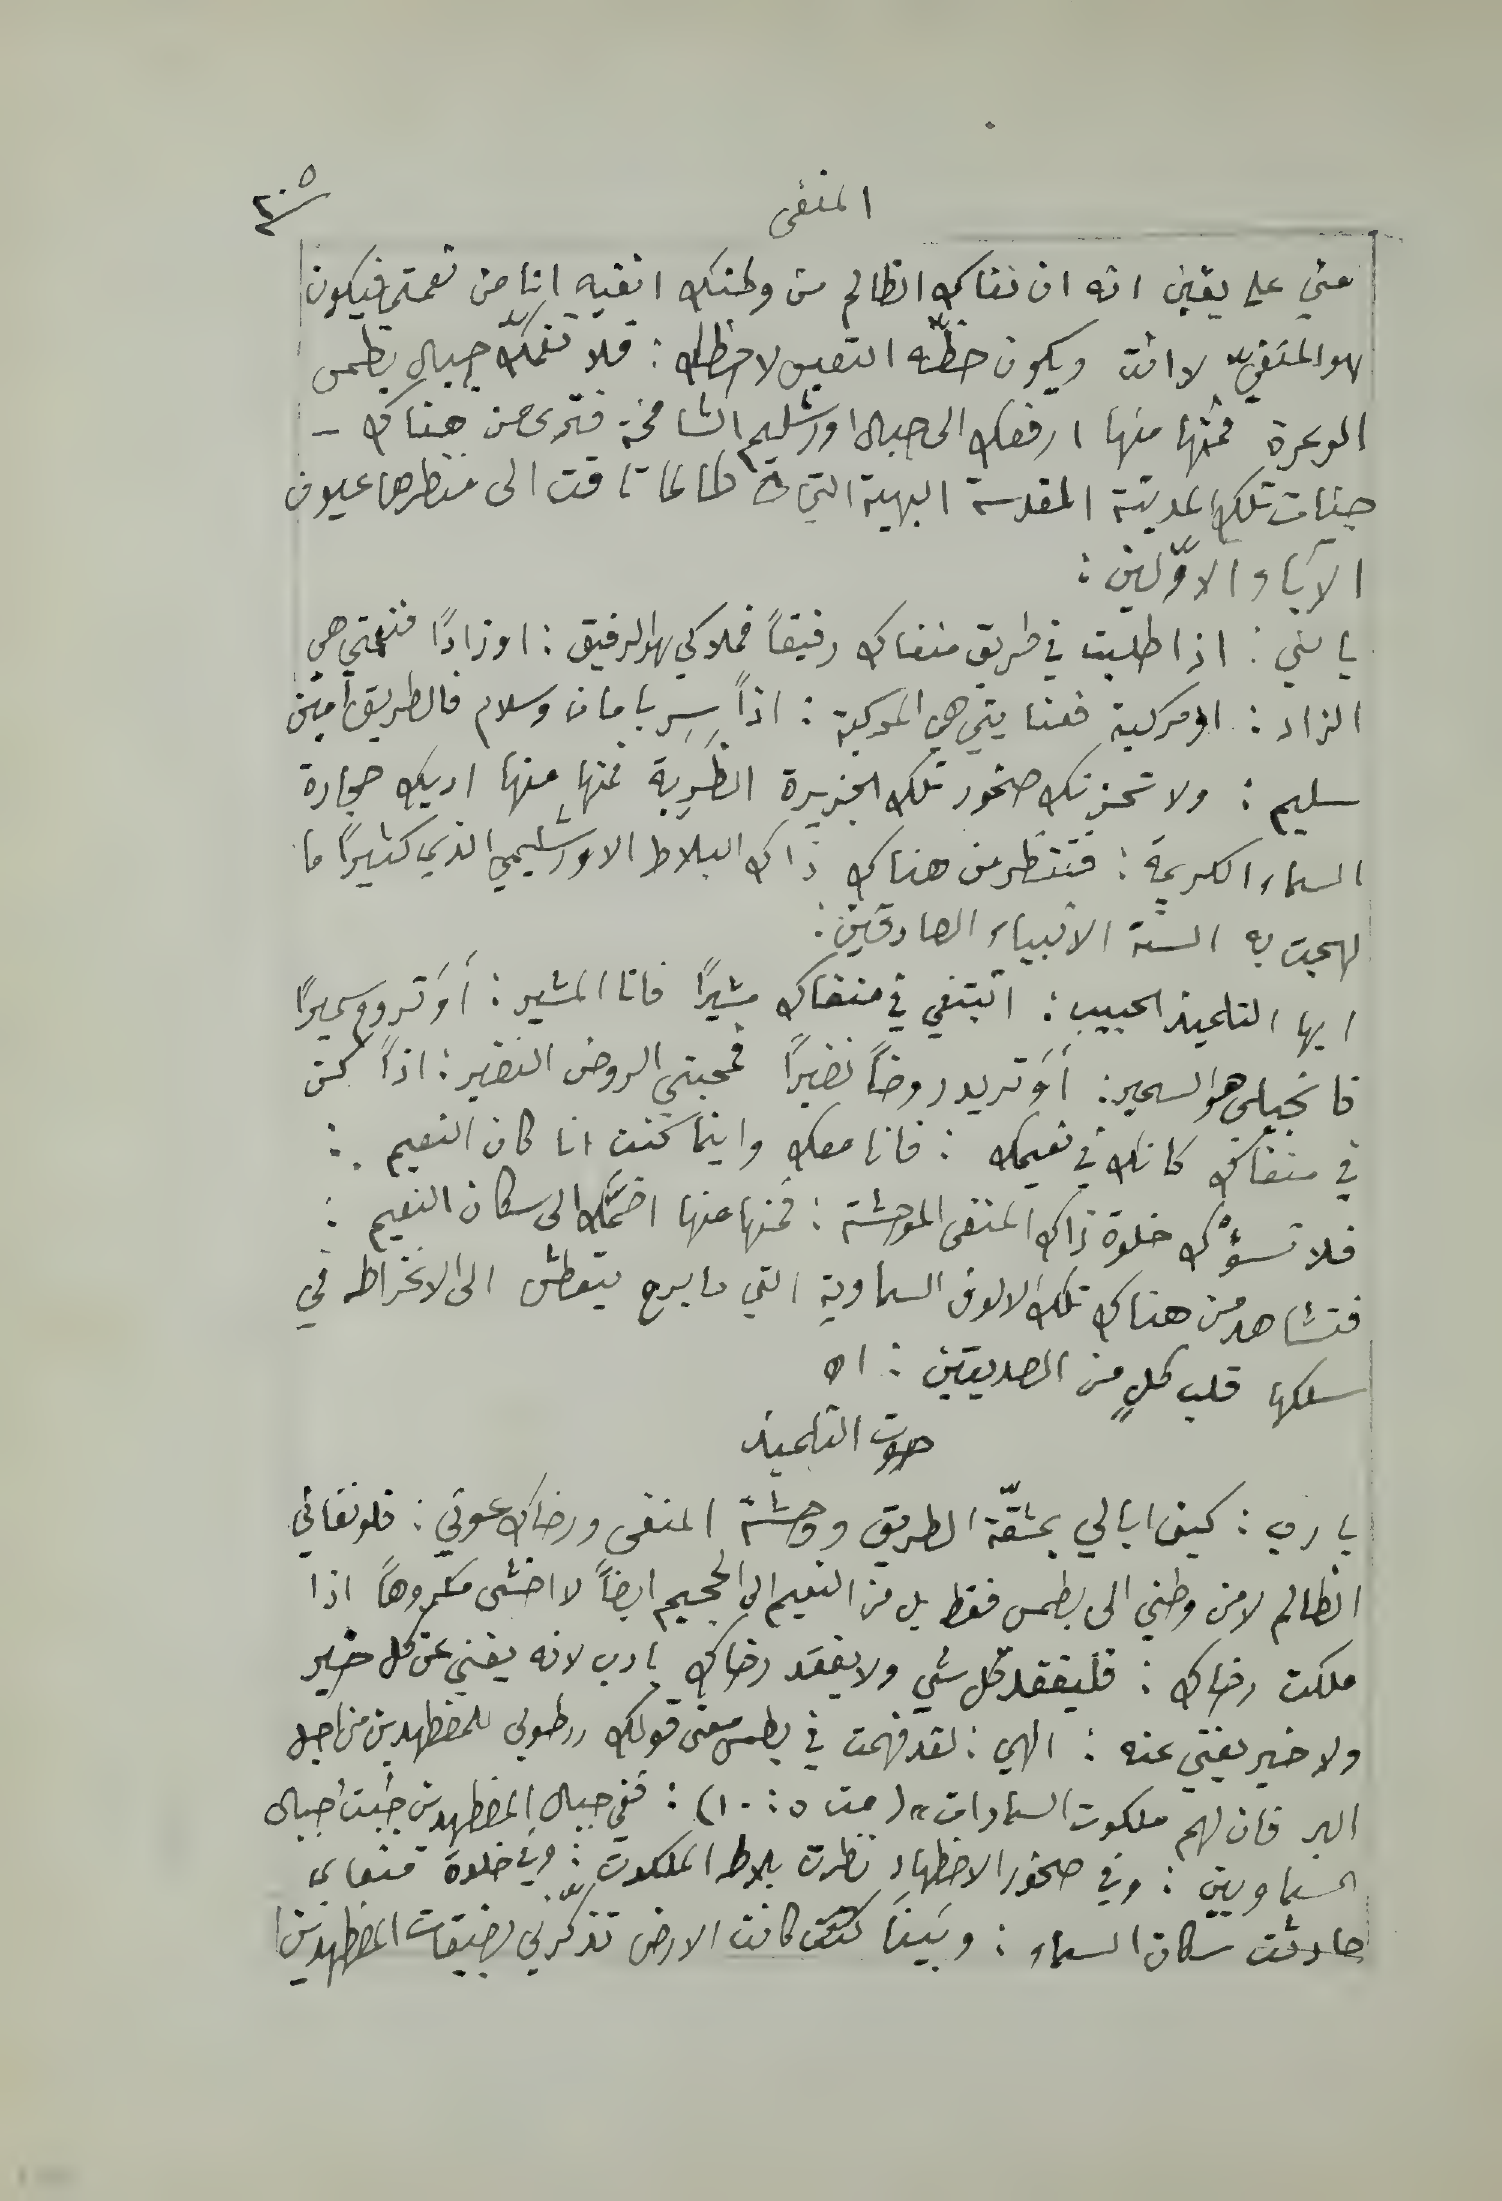 المنفى
٢٠٥
عني على يقين انه ان نفاك الظالم من وطنك انفيه انا من نعمتي فيكون
هو المنفيّ لا انت ويكون حظّه التعيس لا حظك : فلا تغمّك جبال بطمس
الوعرة فمنها منها ارفعك الى جبال اورشليم الشامخة فترى من هناك –
جنات تلك المدينة المقدسة البهية التي طالما تاقت الى منظرها عيون
الآباء الاوّلين :
يا بني : اذا طلبت في طريق منفاك رفيقاً فملاكي هو الرفيق : او زادًا فنعمتي هي
الزاد : او مركبة فعنايتي هي المركبة : اذاً سِر بامان وسلام فالطريق امين
سليم : ولا تحزنك صخور تلك الجزيرة الخَرِبة فمنها منها اريك حجارة
السماء الكريمة : فتنظر من هناك ذاك البلاط الاورشليمي الذي كثيرًا ما
لهجت به السنة الانبياء الصادقين :
ايها التلميذ الحبيب : اتبتغي في منفاك مشيرًا فانا المشير : أوَ تروم سميرًا
فانجيلي هو السمير : أوَ تريد روضاً نضيرًا فمحبتي الروض النضير : اذاً كن
في منفاك كانك في نعيمك : فانا معك واينما كنت انا كان النعيم :
فلا تسؤْك خلوة ذاك المنفى الموحشة : فمنها منها اضمّك الى سكان النعيم :
فتشاهد من هناك تلك الالوف السماوية التي ما برح يتعطش الى الانخراط في
سلكها قلب كلٍ من الصديقين : اه
صوت التلميذ
يا رب : كيف ابالي بمشقّة الطريق ووحشة المنفى ورضاك عوني : فلو نفاني
الظالم لا من وطني الى بطمس فقط بل من النعيم الى الجحيم ايضاً لا اخشى مكروهاً اذا
ملكت رضاك : فليفقد كل شي ولا يفقد رضاك يا رب لانه يغني عن كل خير
ولا خير يغني عنه : الهي : لقد فهمت في بطمس معنى قولك «طوبى للمضطهدين من اجل
البر فان لهم ملكوت السماوات» (مت ٥ : ١٠) : ففي جبال المضطهدين جبال
السماويين : وفي صخور الاضطهاد نظرت بلاط الملكوت : وفي خلوة منفاي
حادثت سكان السماء : وبَينَا كانت الارض تذكّرني بضيقات المضطهدين